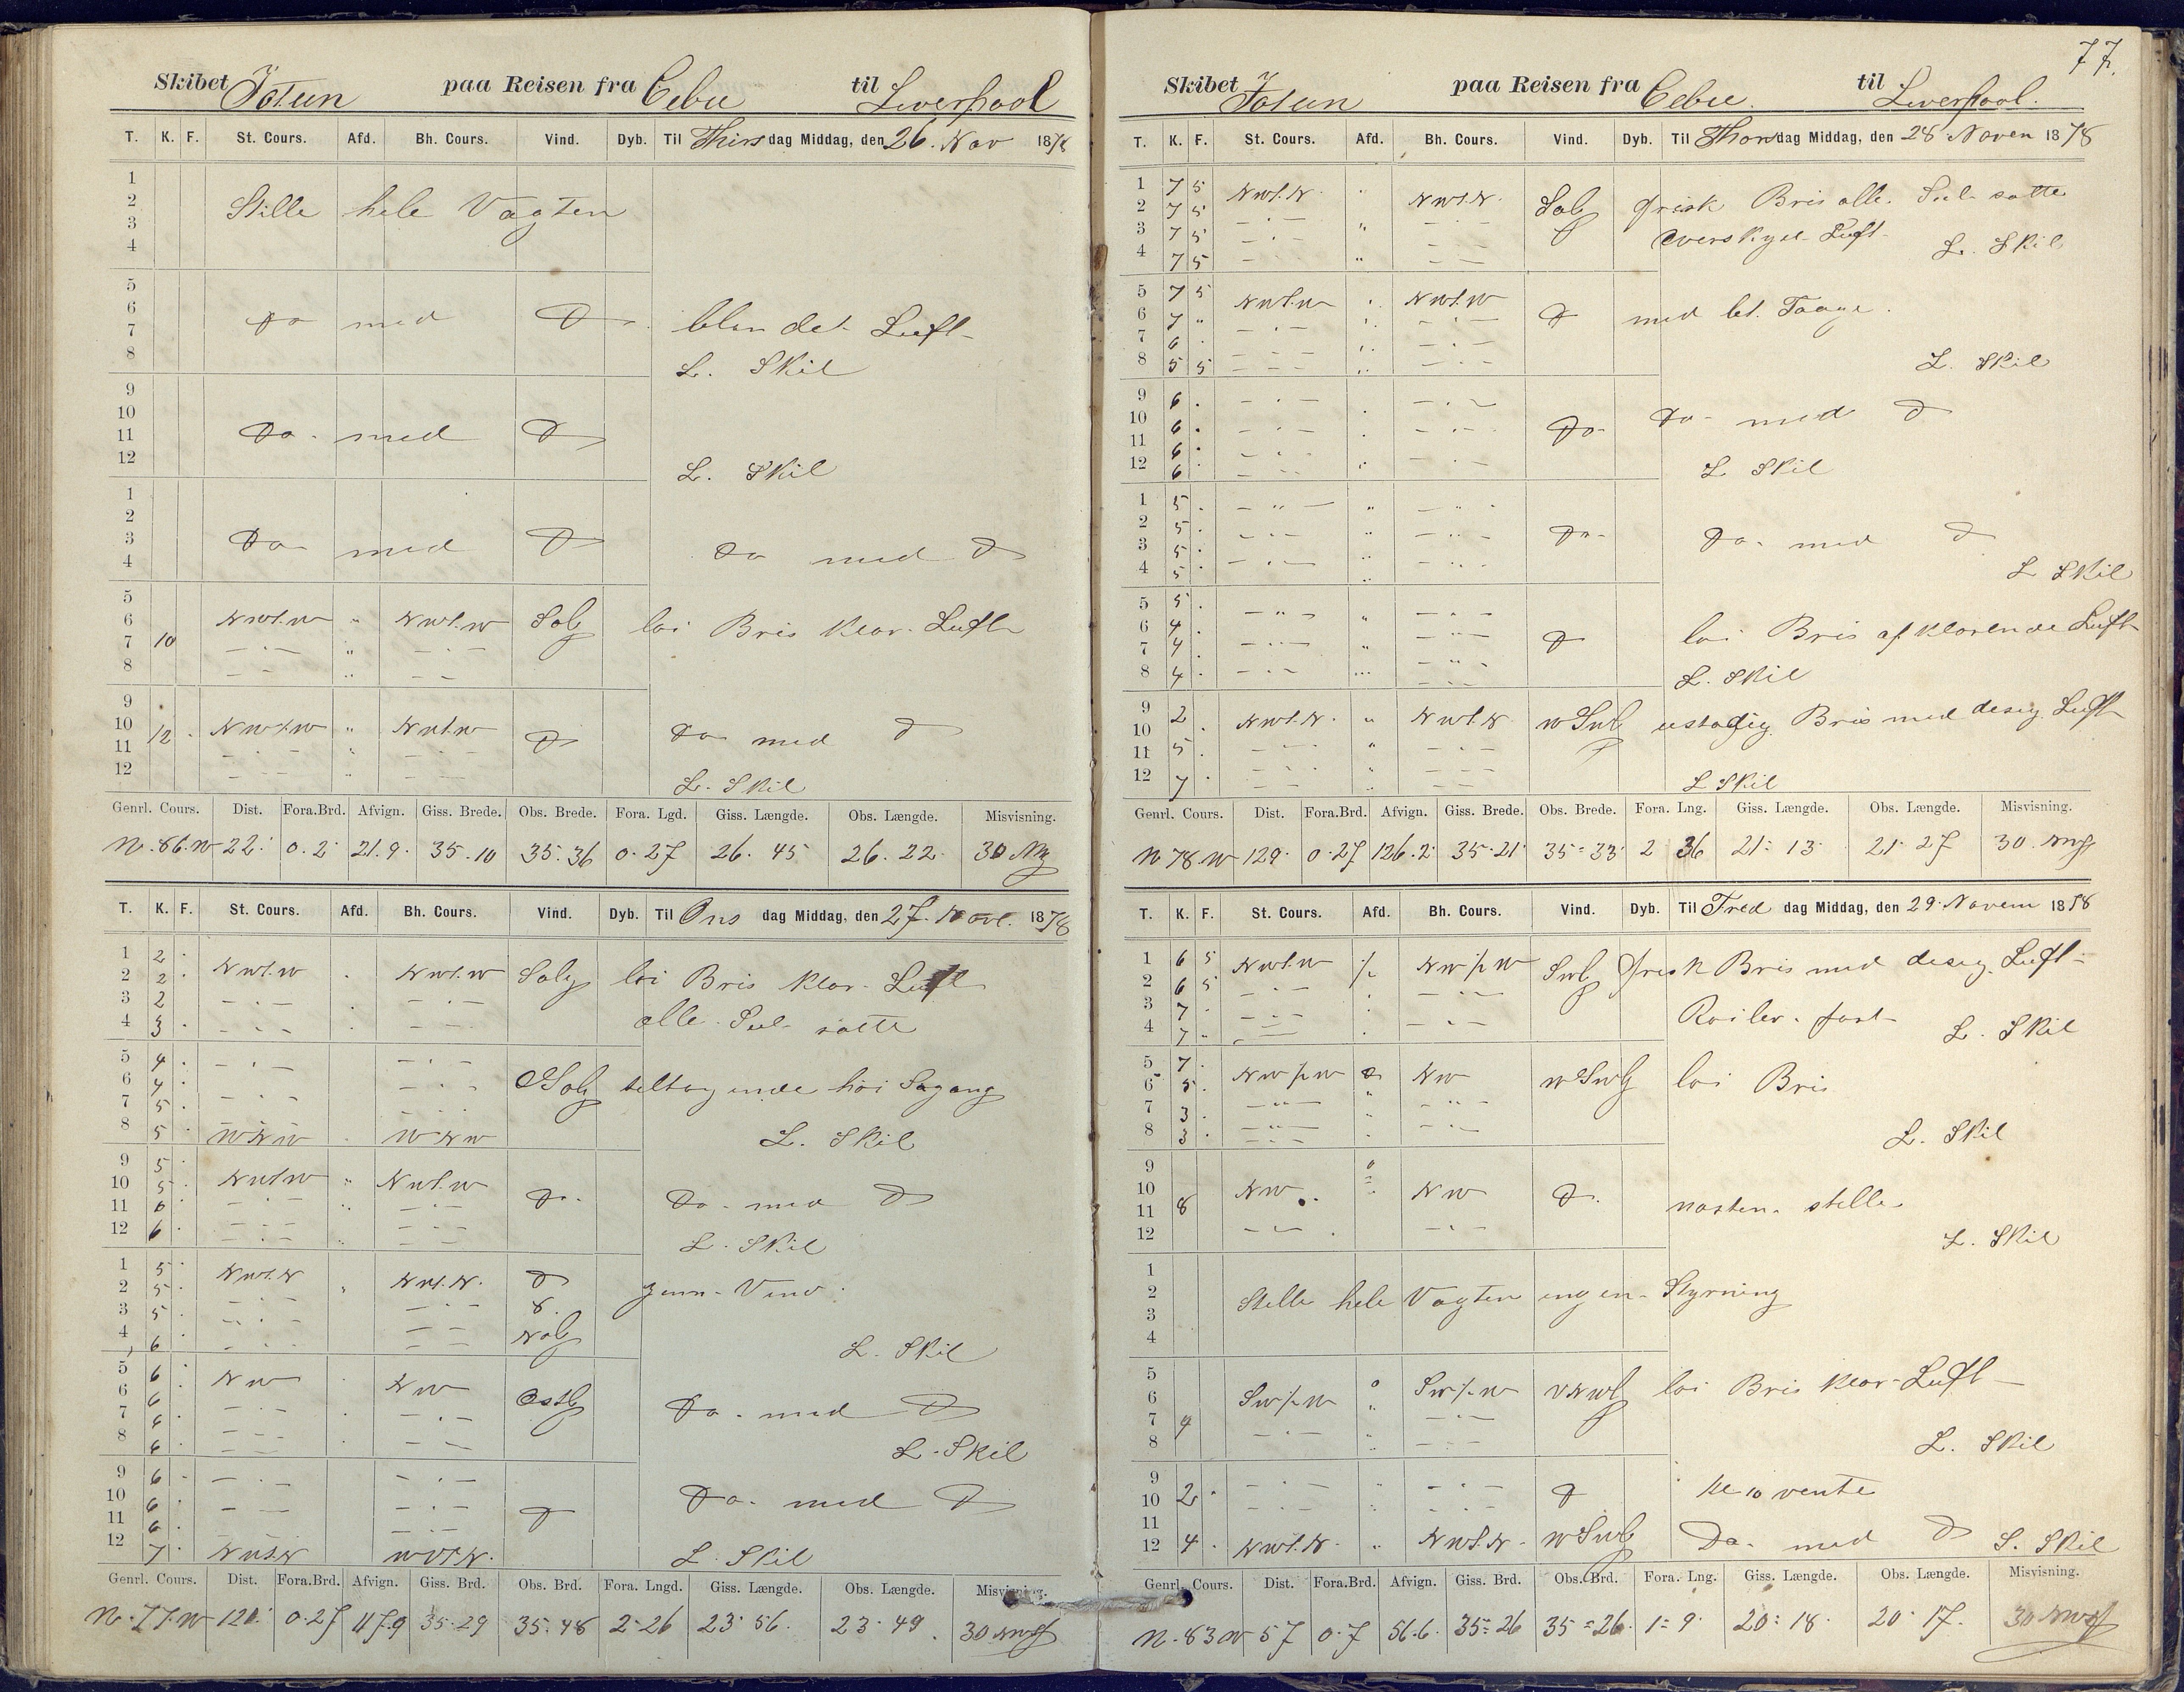 77.
Skibet Jotun paa Reisen fra Cebu til Liverpool
T. K. F. St. Cours. Afd. Bh. Cours. Vind. Dyb. Til Thirs dag Middag, den 26. Nov 1878
1
2 Stille hele Vagten
3
4
5
6 Do med D blandet Luft
7
8 L. Skil
9
10
11 Do. med D
12 L. Skil
1
2
3 Do med D Do med D
4
5
6 NWt.W " NWt.W Solg loi Bris klar Luft
7 10 - . - " - . -
8 - - " - -
9
10 12 NWtW " NWtW D Do med D
11 - . - " - . -
12 - - - " - - - L. Skil
Genrl. Cours. Dist. Fora.Brd. Afvign. Giss. Brede. Obs. Brede. Fora. Lgd. Giss. Længde. Obs. Længde. Misvisning.
N.86.W 22. 0.2 21.9. 35.10 35.36 0.27 26.45 26.22 30
T. K. F. St. Cours. Afd. Bh. Cours. Vind. Dyb. Til Ons dag Middag, den 27. Nov. 1878
1 2
2 2 NWt.W NWt.W Solg loi Bris klar Luft
3 2 - . - - . -
4 3 - . - - . - alle Seil satte
5 4 - . - - . -
6 4 - . - - . - OSolg tiltagende hoi Sogang
7 5 - . - - . -
8 5 WNW WNW L. Skil
9 5
10 5 NWtW " NWt.W Do. Do. med D
11 6 - . - - . -
12 6 - . - - . - L. Skil
1 5 NWt.N NWt.N. D
2 5 - . - - . - Vind
3 5 - . - - . - Nolg
4 6 - . - - - L. Skil
5 6 NW NW Ostlg
6 6 - . - - . - Do. med D
7 6 - . - - . -
8 6 - - - - - L. Skil
9 6 - . - - . -
10 6 - - - . - Do. med D
11 6 D
12 7 NWtN L. Skil
Genrl. Cours. Dist. Fora.Brd. Afvign. Giss. Brd. Obs. Brd. Fora. Lngd. Giss. Længde. Obs. Længde. Misvisning.
N.77.W 121. 0.27 117.9 35.29 35.48 2.26 23.56. 23.49. 30
Skibet Jotun paa Reisen fra Cebu. til Liverpool.
T. K. F. St. Cours. Afd. Bh. Cours. Vind. Dyb. Til Thorsdag Middag, den 28 Novem 1878
1 7 5 NWt.N. NWt.N. Solg frisk Bris alle Seil satte
2 7 5 - . - - . -
3 7 5 - . - " - - overskyet Luft
4 7 5 - . - " - - L. Skil
5 7 5 NWt.W NWt.W
6 7 " - . - - . - D med let Taage.
7 6 - . - - . -
8 5 5 - - - - . - L. Skil
9 6 . - . - - . -
10 6 . - . - - . - Do Do med D
11 6 . - . -
12 6 . - . - L Skil
1 5 . - " - " - " -
2 5 . - . - " - " - Do. Do. med D
3 5 . - . - " - . -
4 5 . L Skil
5 5 . - " - " - . -
6 4 . - . - " - " - D loi Bris afklarende Luft
7 4 . - . - " - " -
8 4 . - . - - . - L. Skil
9 2 NWt.N. " NWt.N WSWlg ustadig Bris med desig Luft
10 . - . - " - . -
11 5 . - . - " - . -
12 7 . - . - - - L Skil
Genrl. Cours. Dist. Fora.Brd. Afvign. Giss. Brede. Obs. Brede. Fora. Lng. Giss. Længde. Obs. Længde. Misvisning.
N 78 W 129. 0.27 126.2 35.21 35=33 2 36 21=13 21.27 30.
T. K. F. St. Cours. Afd. Bh. Cours. Vind. Dyb. Til Fred dag Middag, den 29. Novem 1878
1 6 5 NWt.W NW/tW SWlg frisk Bris med desig Luft
2 6 5 - . - - . -
3 7 . - . - Roiler fast
4 7 " - . - - . - L. Skil
5 7 . NW/tW NW WSWlg loi Bris
6 5 . - . - " - " -
7 3 . - . - - . -
8 3 . - . - L. Skil
9
10 NW NW D. nasten stille
11 8
12 - . - - . - L. Skil
1
2 Stille hele Vagten ingen Styrning
3
4
5
6 SW/tW SW/tW loi Bris klar Luft
7 4 - . -
8 - . - - . - L. Skil
9 - . - - . -
10 2 . - . - - . - D kl 10 vente
11
12 4 . NWt.N. " NWt.N. WSWlg Do. med D L. Skil
Genrl. Cours. Dist. Fora.Brd. Afvign. Giss. Brd. Obs. Brd. Fora. Lng. Giss. Længde. Obs. Længde. Misvisning.
N.83W 57 0.7 56.6. 35=26 35=26. 1=9. 20=18. 20.17. 30